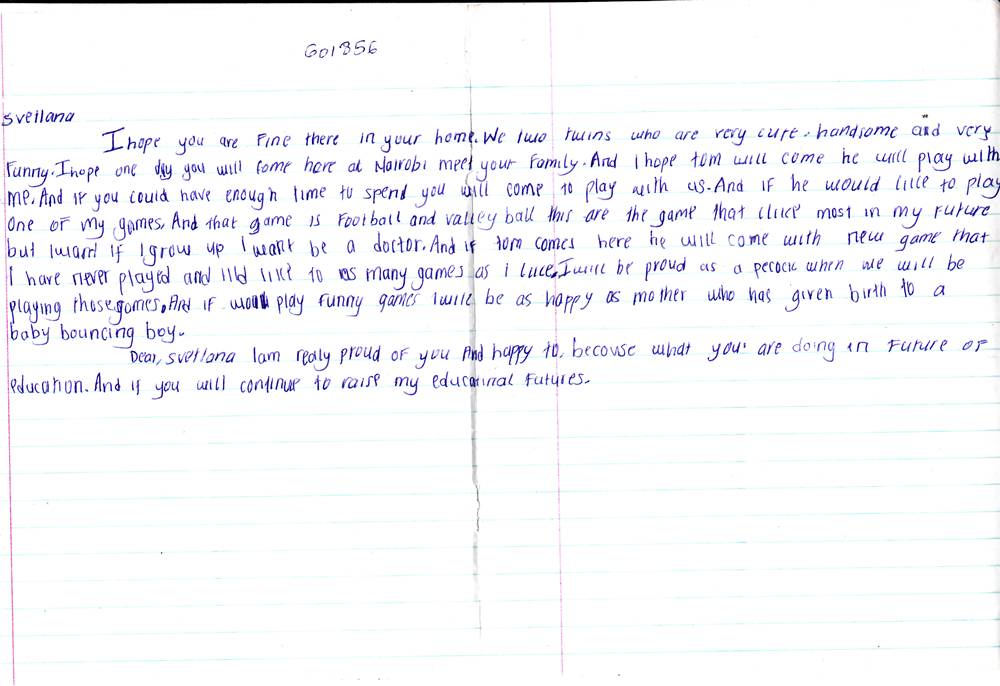 G01856
Svetlana
I hope you are Fine there in your home. We two twins who are very cute. handsome and very
Funny. I hope one day you will come here at Nairobi meet your Family. And I hope tom will come he will play with
me. And if you could have enough time to spend you will come to play with us. And if he would like to play
One of my games. And that game is Football and valley ball this are the game that I like most in my Future
but I want if I grow up I want be a doctor. And if tom comes here he will come with new game that
I have never played and I'ld like to as many games as i like. I will be proud as a pecock when we will be
playing those games. And if would play funny games I will be as happy as mother who has given birth to a
baby bouncing boy.
Dear, svetlana Iam realy proud of you And happy to, becouse what you are doing in Future of
education. And if you will continue to raise my educatinal Futures.